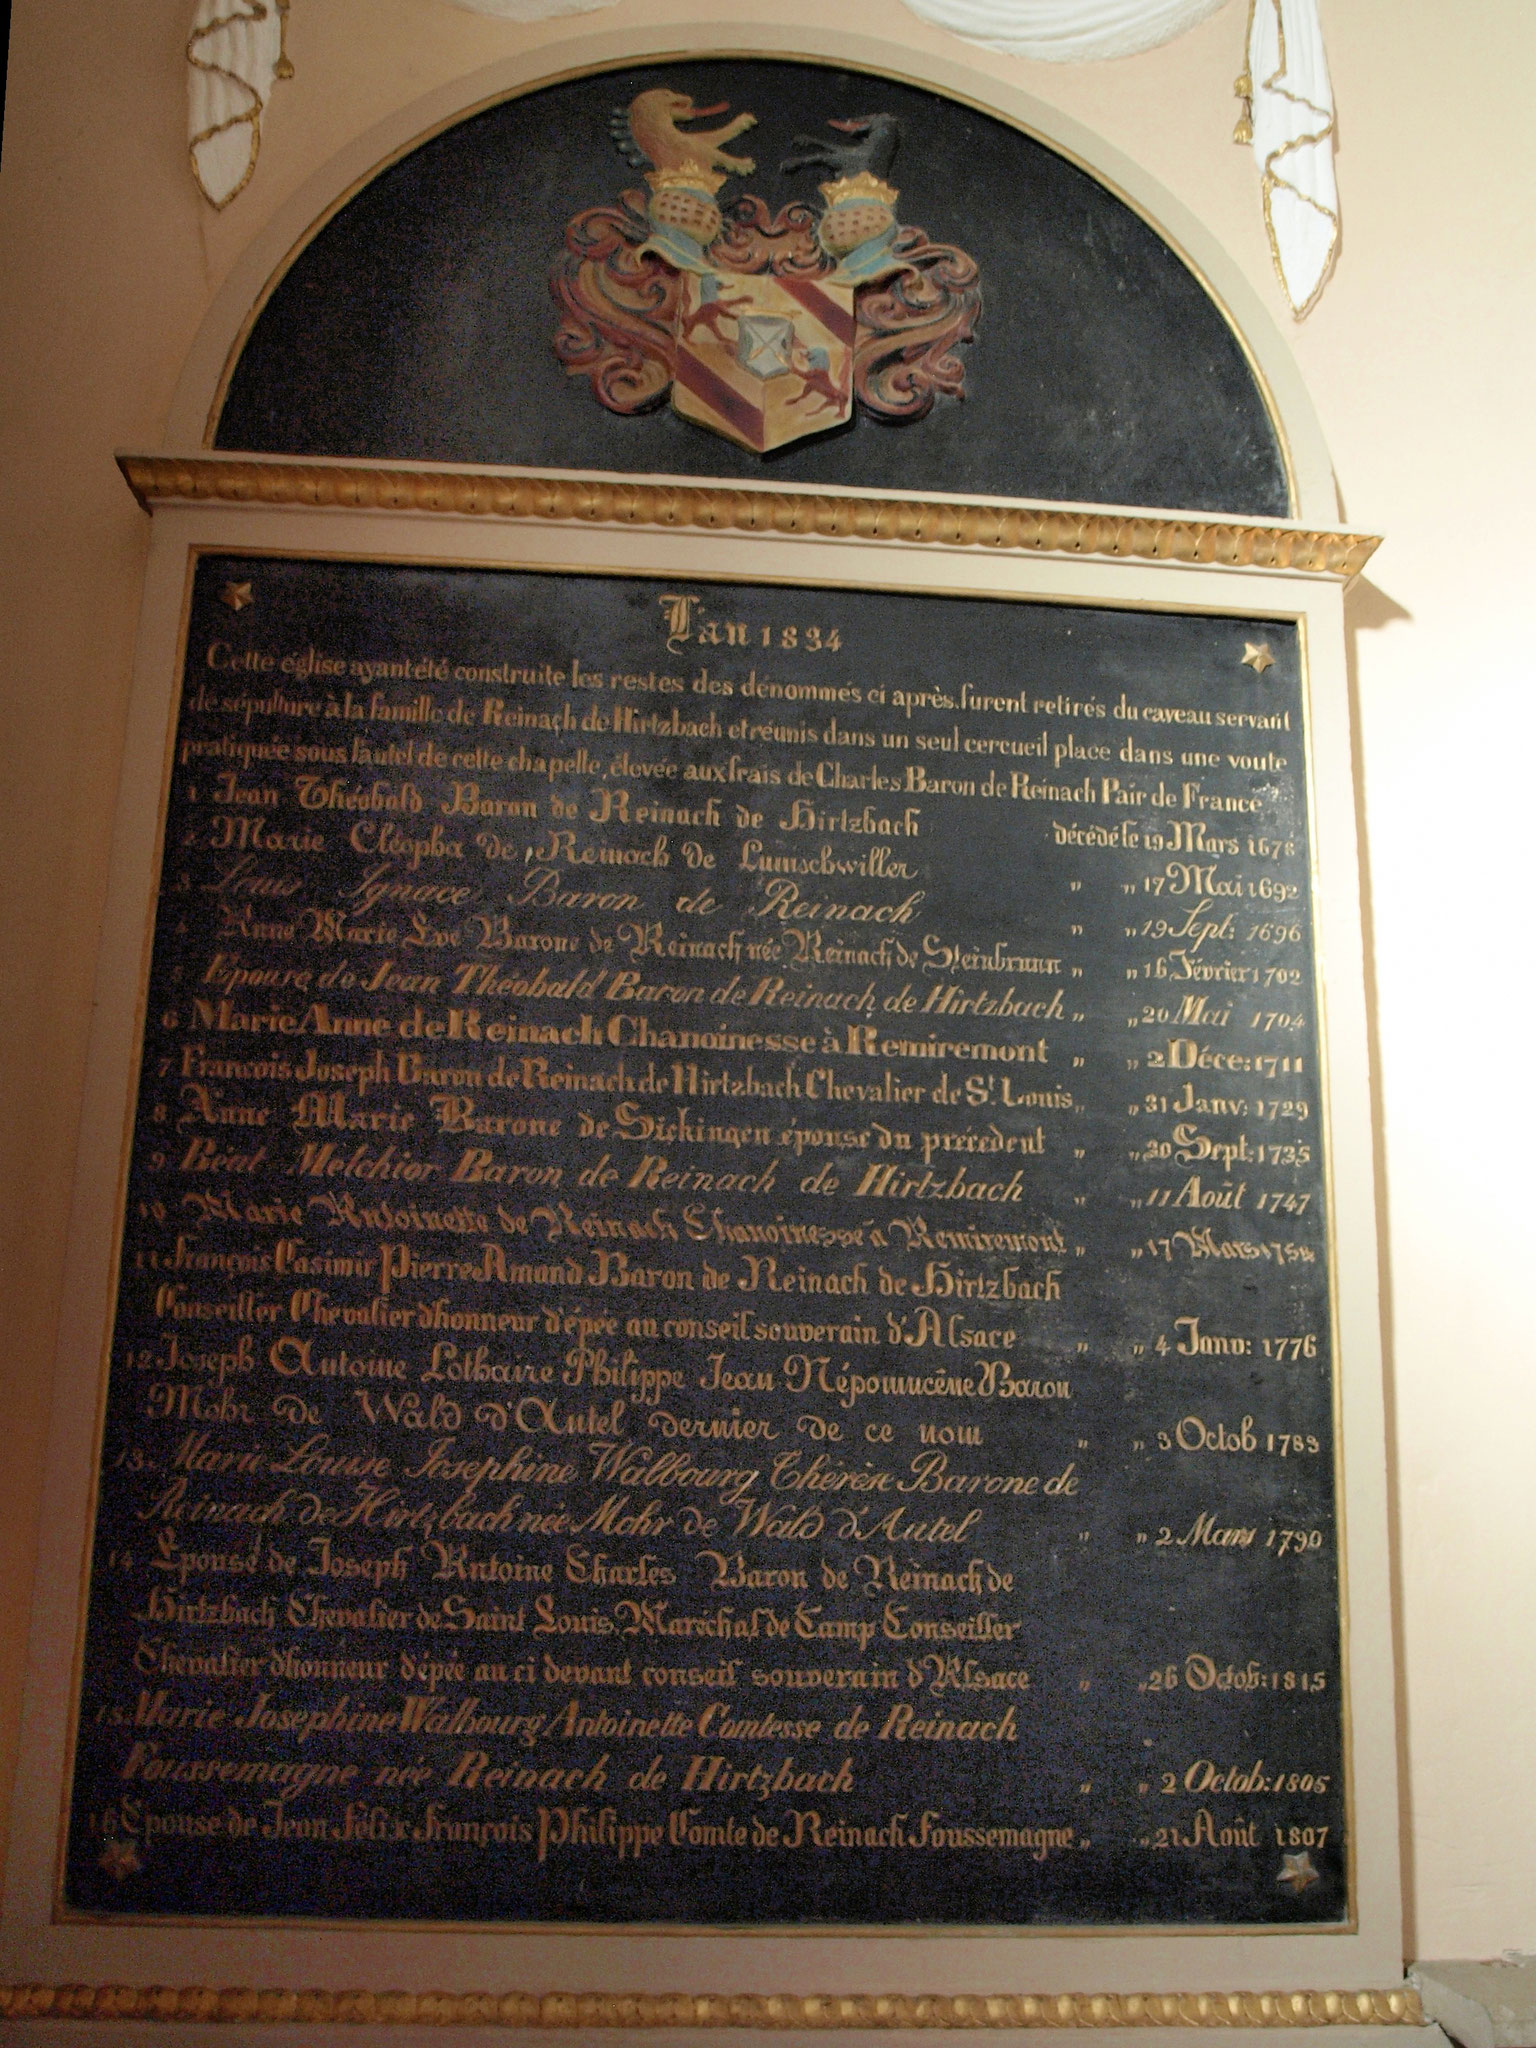 L'an 1834
Cette église ayant été construite les restes des dénommés ci après furent retirés du caveau servant
de sépulture à la famille de Reinach de Hirtzbach et réunis dans un seul cercueil place dans une voute
pratiquée sous l'autel de cette chapelle, élevée aux frais de Charles Baron de Reinach Pair de France
1 Jean Théobald Baron de Reinach de Hirtzbach décédé le 19 Mars 1678
2 Marie Cléopha de Reinach de Lumschwiller " " 17 Mai 1692
3 Louis Ignace Baron de Reinach " " 19 Sept: 1696
4 Anne Marie Eve Barone de Reinach née Reinach de Steinbrunn " " 16 Février 1702
5 Epouse de Jean Théobald Baron de Reinach de Hirtzbach " " 20 Mai 1704
6 Marie Anne de Reinach Chanoinesse à Remiremont " " 2 Déce: 1711
7 François Joseph Baron de Reinach de Hirtzbach Chevalier de St. Louis " " 31 Janv: 1729
8 Anne Marie Barone de Sickingen épouse du précedent " " 30 Sept: 1735
9 Béat Melchior Baron de Reinach de Hirtzbach " " 11 Août 1747
10 Marie Antoinette de Reinach Chanoinesse à Remiremont " " 17 Mars 1754
11 François Casimir Pierre Amand Baron de Reinach de Hirtzbach
Conseiller Chevalier d'honneur d'épée au conseil souverain d'Alsace " " 4 Janv: 1776
12 Joseph Antoine Lothaire Philippe Jean Népomucêne Baron
Mohr de Wald d'Autel dernier de ce nom " " 3 Octob 1783
13. Marie Louise Josephine Walbourg Thérèse Barone de
Reinach de Hirtzbach née Mohr de Wald d'Autel " " 2 Mars 1790
14 Epouse de Joseph Antoine Charles Baron de Reinach de
Hirtzbach Chevalier de Saint Louis, Maréchal de Camp Conseiller
Chevalier d'honneur d'épée au ci devant conseil souverain d'Alsace " " 26 Octob: 1815
15. Marie Josephine Walbourg Antoinette Comtesse de Reinach
Foussemagne née Reinach de Hirtzbach " " 2 Octob: 1805
16 Epouse de Jean Félix François Philippe Comte de Reinach Foussemagne " " 21 Août 1807